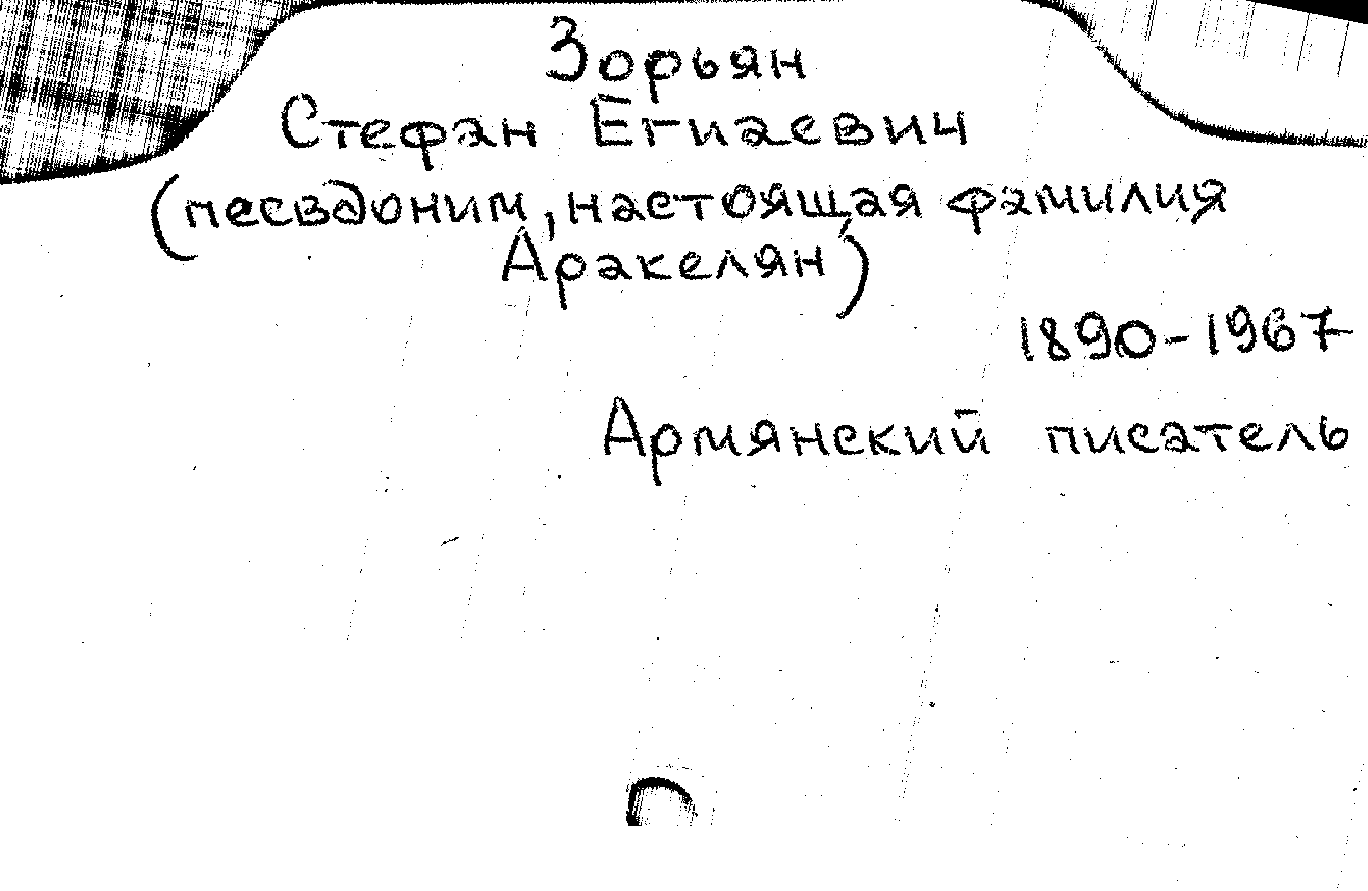 Зорьян
Стефан Егиаевич
(песвдоним, настоящая фамилия
Аракелян)
1890-1967
Армянский писатель